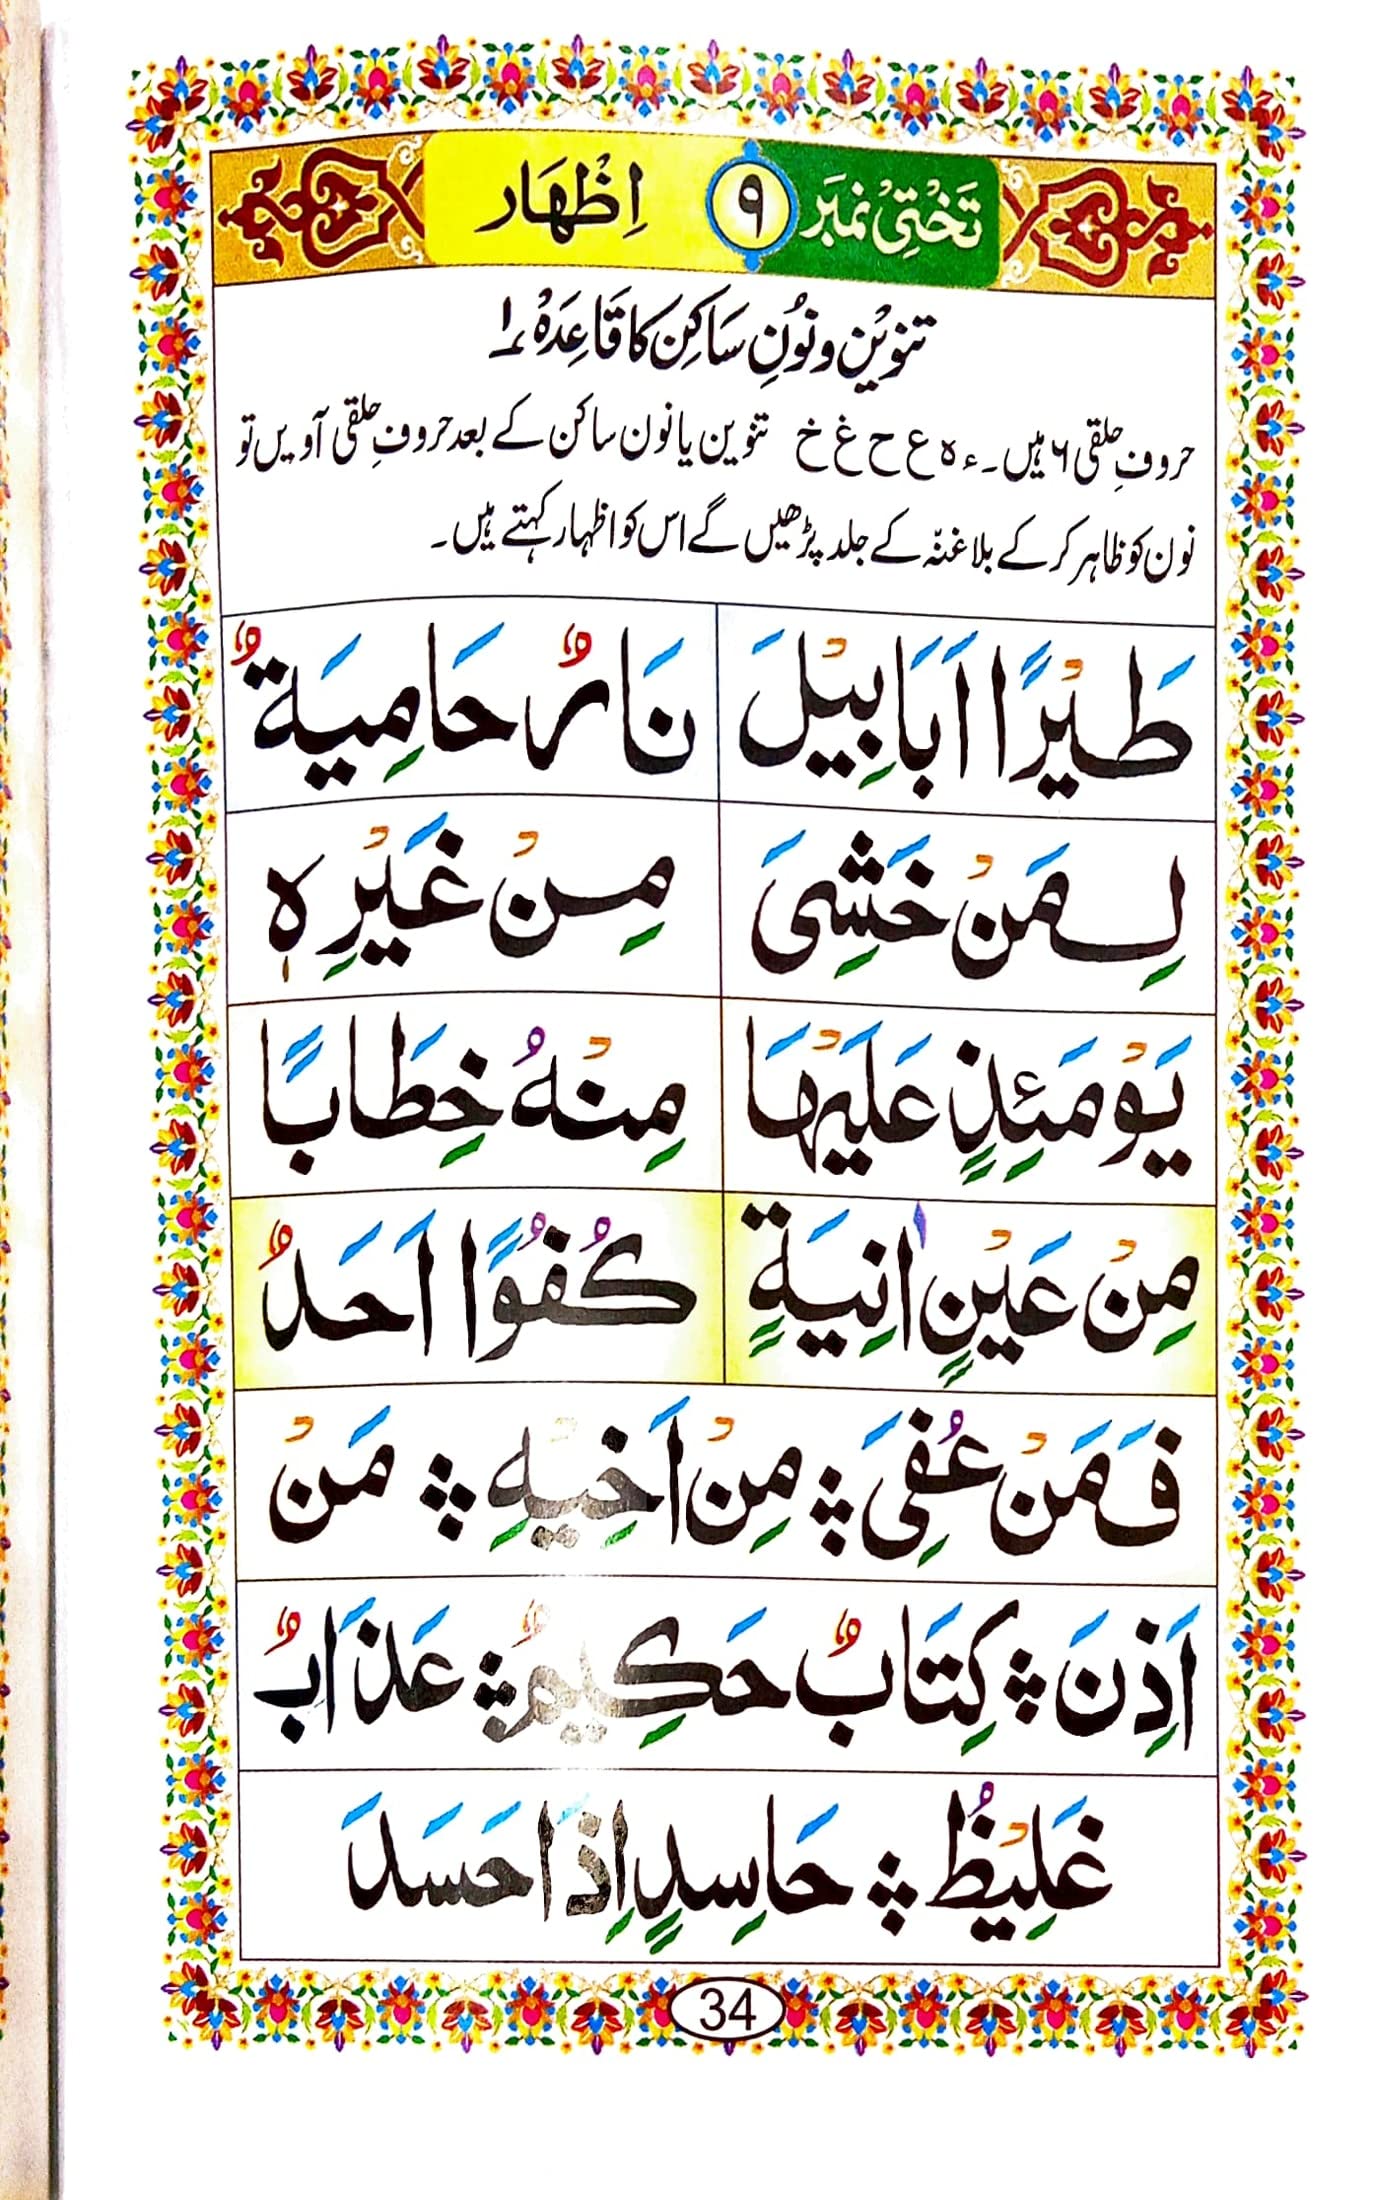 تَخْتِیْ نمبَر ۹ اِظْهَار
تنوِیْن و نُوْنِ سَاکِن کا قَاعِدَہْ ۱
حروفِ حلقی ۶ ہیں۔ ء ہ ع ح غ خ تنوین یا نون ساکن کے بعد حروفِ حلقی آویں تو
نون کو ظاہر کر کے بلا غنّہ کے جلد پڑھیں گے اس کو اظہار کہتے ہیں۔
طَيْرًا اَبَابِيْلَ نَارٌ حَامِيَةٌ
لِمَنْ خَشِيَ مِنْ غَيْرِهٖ
يَوْمَئِذٍ عَلَيْهَا مِنْهُ خِطَابًا
مِنْ عَيْنٍ اٰنِيَةٍ كُفُوًا اَحَدٌ
فَمَنْ عُفِيَ ؞ مِنْ اَخِيْهِ ؞ مَنْ
اَذِنَ ؞ كِتَابٌ حَكِيْمٌ ؞ عَذَابٌ
غَلِيْظُ ؞ حَاسِدٍ اِذَا حَسَدَ
34